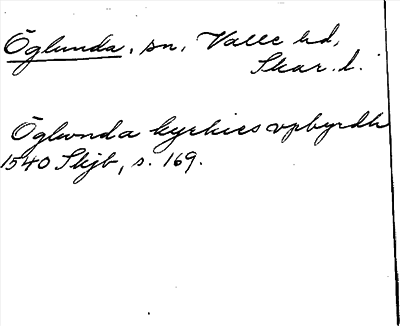 Öglunda, sn, Valle hd,
Skar. l.
Öglunda kyrkies vpbyrdh
1540 Skjb, s. 169.